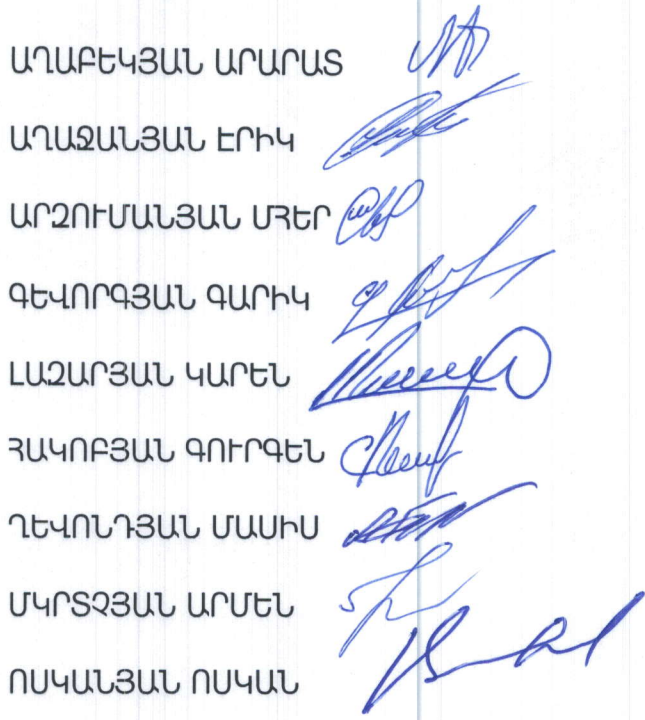 ԱՂԱԲԵԿՅԱՆ ԱՐԱՐԱՏ
ԱՂԱՋԱՆՅԱՆ ԷՐԻԿ
ԱՐԶՈՒՄԱՆՅԱՆ ՄՀԵՐ
ԳԵՎՈՐԳՅԱՆ ԳԱՐԻԿ
ԼԱԶԱՐՅԱՆ ԿԱՐԵՆ
ՀԱԿՈԲՅԱՆ ԳՈՒՐԳԵՆ
ՂԵՎՈՆԴՅԱՆ ՄԱՍԻՍ
ՄԿՐՏՉՅԱՆ ԱՐՄԵՆ
ՈՍԿԱՆՅԱՆ ՈՍԿԱՆ